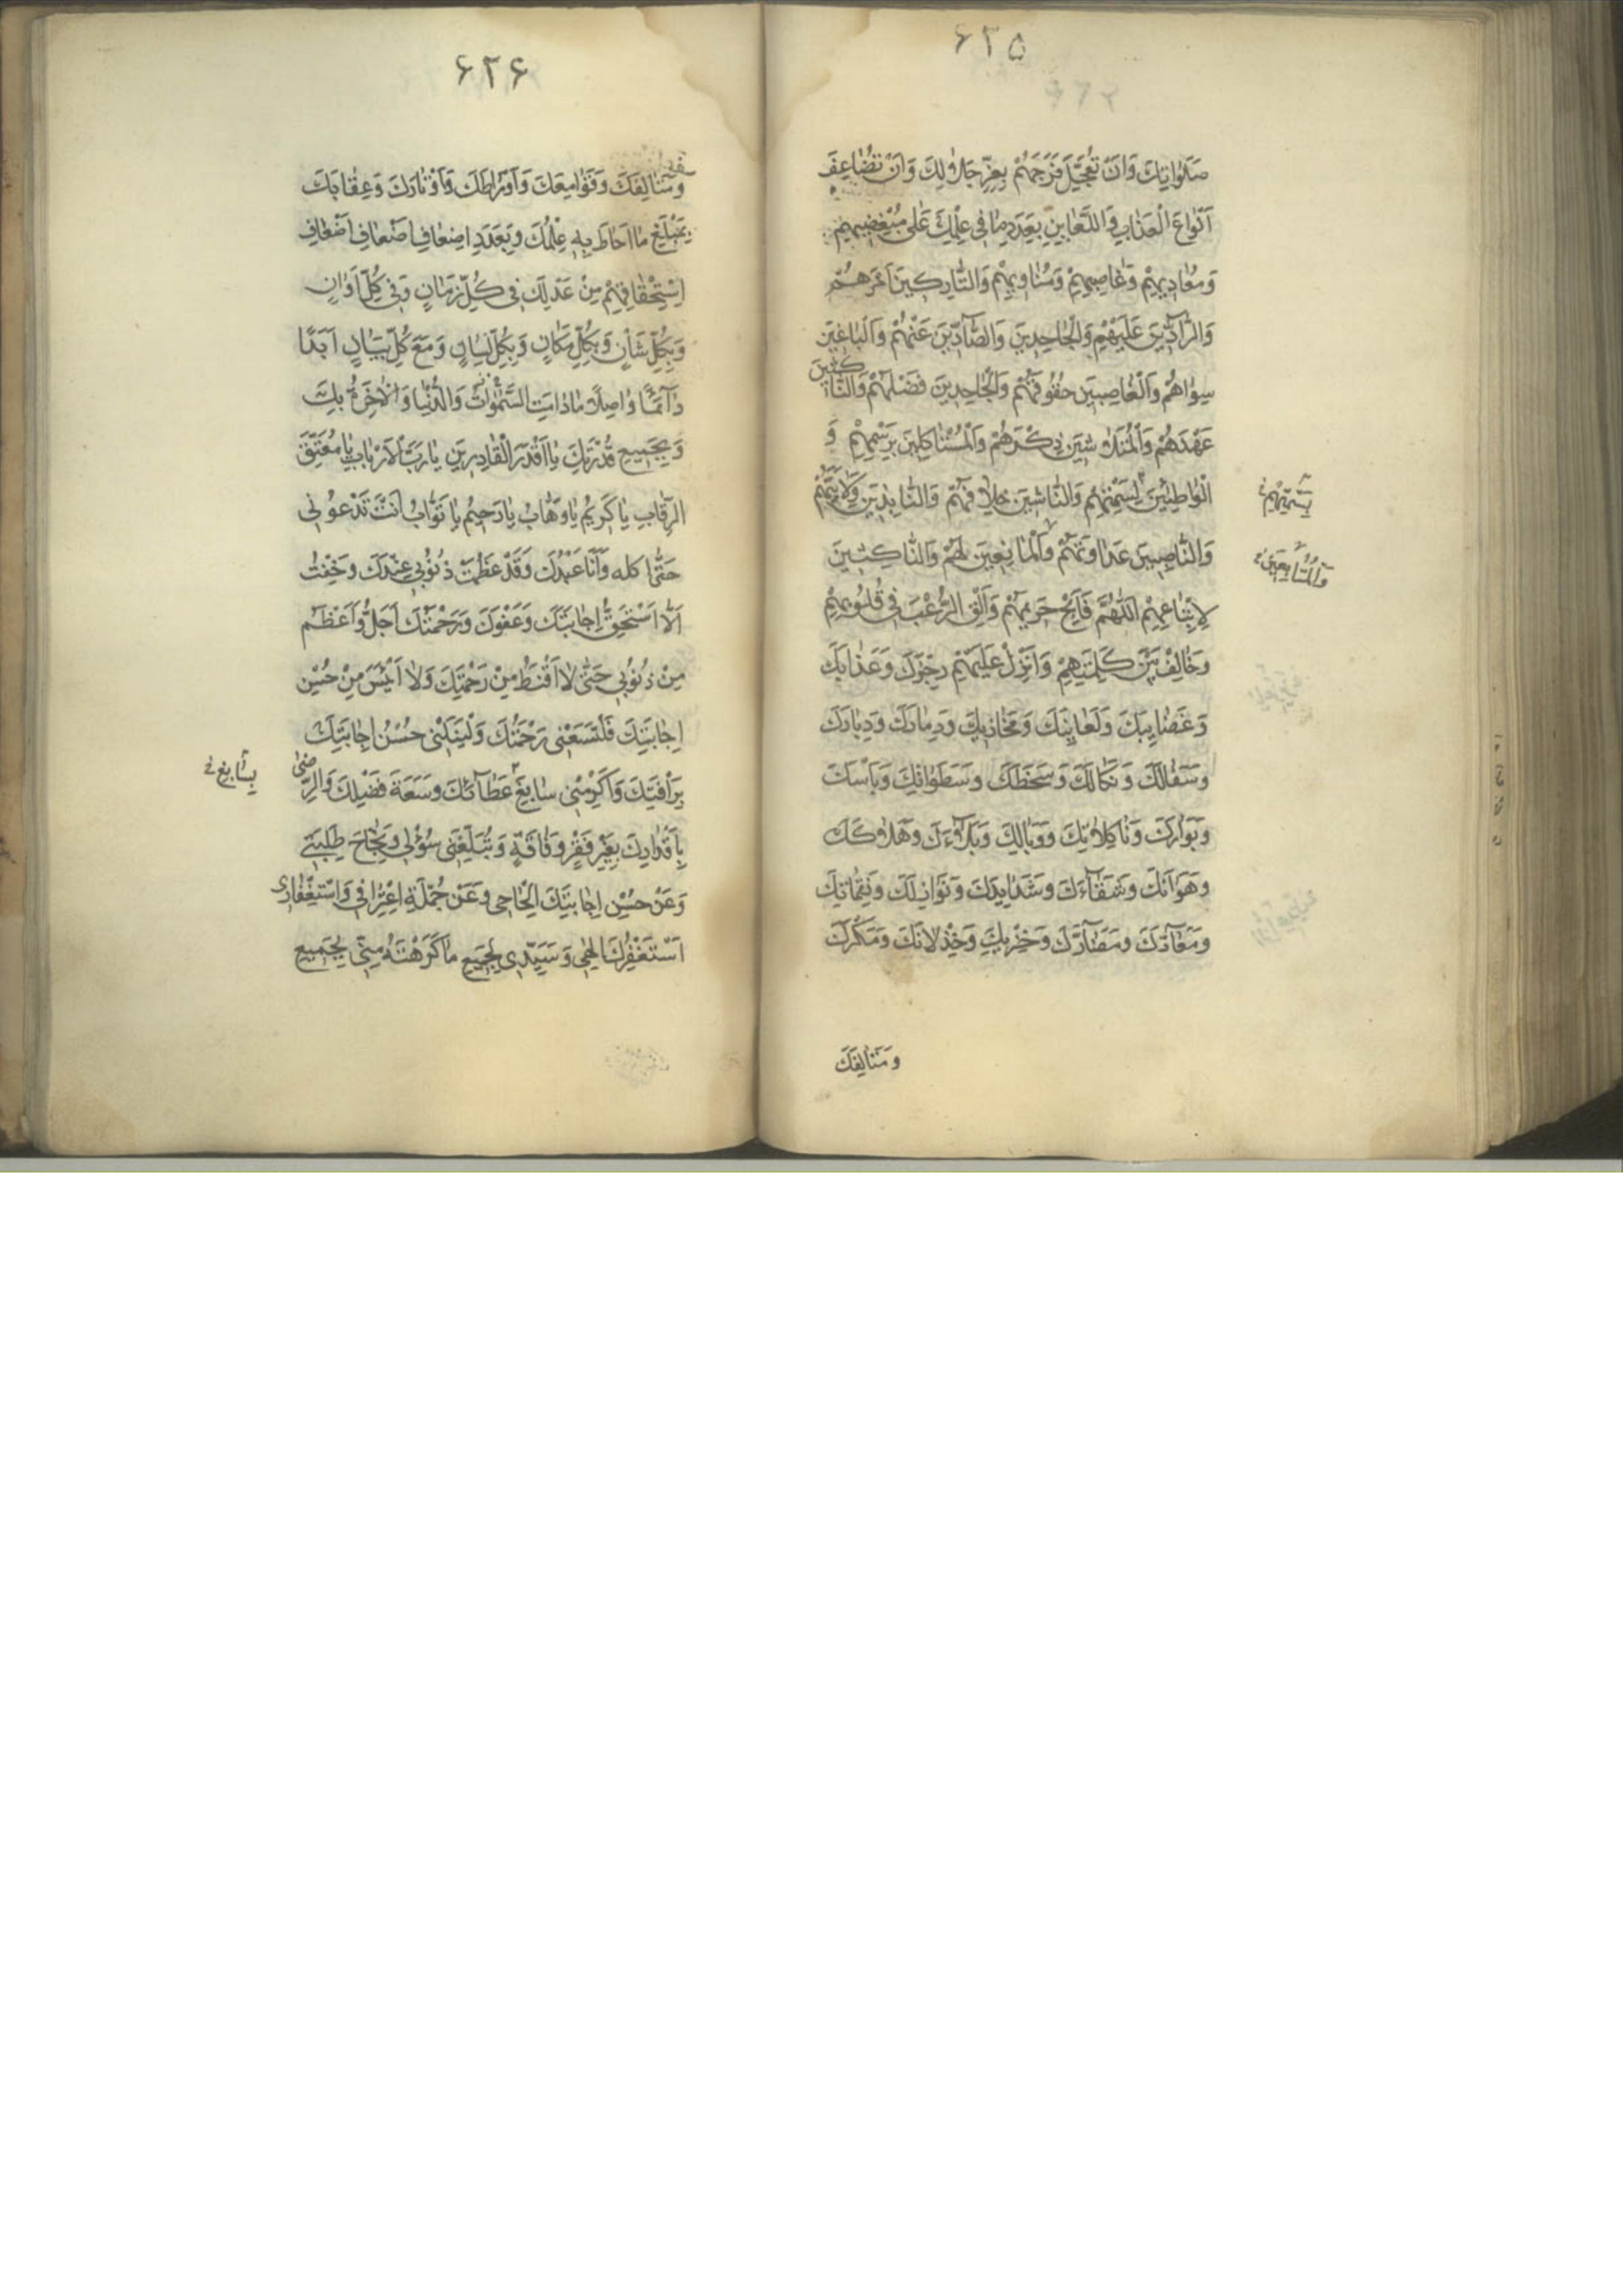 ۶۳۵
صَلَوٰاتِكَ وَاَنْ تُعَجِّلَ فَرَجَهُمْ بِعِزِّ جَلاٰلِكَ وَاَنْ تُضٰاعِفَ
اَنْوٰاعَ الْعَذٰابِ وَاللَّعٰايِنِ بِعَدَدِ مٰا فِى عِلْمِكَ عَلٰى مُبْغِضِيهِمْ
وَمُعٰادِيهِمْ وَغٰاصِبِيهِمْ وَمُنٰاوِيهِمْ وَالتّٰارِكِينَ اَمْرَهُمْ
وَالرّٰادِّينَ عَلَيْهِمْ وَالْجٰاحِدِينَ وَالصّٰادِّينَ عَنْهُمْ وَالْبٰاغِينَ
سِوٰاهُمْ وَالْغٰاصِبِينَ حُقُوقَهُمْ وَالْجٰاحِدِينَ فَضْلَهُمْ وَالنّٰاكِثِينَ
عَهْدَهُمْ وَالْمُتَلاٰشِينَ ذِكْرَهُمْ وَالْمُسْتَاكِلِينَ بِرَسْمِهِمْ وَ
الْوٰاطِئِينَ لِسَمْتِهِمْ وَالنّٰاشِينَ خِلاٰفَهُمْ وَالنّٰابِذِينَ وَلاٰيَتَهُمْ
بِسَمْتِهِمْ
وَالنّٰاصِبِينَ عَدٰاوَتَهُمْ وَالْمٰانِعِينَ لَهُمْ وَالنّٰاكِثِينَ
لِاِتِّبٰاعِهِمْ اَللّٰهُمَّ فَاَبِحْ حَرِيمَهُمْ وَاَلْقِ الرُّعْبَ فِى قُلُوبِهِمْ
وَخٰالِفْ بَيْنَ كَلِمَتِهِمْ وَاَنْزِلْ عَلَيْهِمْ رِجْزَكَ وَعَذٰابَكَ
وَغَضٰايِبَكَ وَلَعٰايِنَكَ وَمَخٰازِيكَ وَدَمٰارَكَ وَدَبٰارَكَ
وَسَفٰالَكَ وَنَكٰالَكَ وَسَخَطَكَ وَسَطَوٰاتِكَ وَبَاْسَكَ
وَبَوٰارَكَ وَنٰاكِلاٰتِكَ وَوَبٰالَكَ وَبَلاٰءَكَ وَهَلاٰكَكَ
وَهَوٰانَكَ وَشَقٰاءَكَ وَشَدٰايِدَكَ وَنَوٰازِلَكَ وَنَقِمٰاتِكَ
وَمَعٰارَّكَ وَمَضٰارَّكَ وَخِزْيَكَ وَخِذْلاٰنَكَ وَمَكْرَكَ
وَمَتٰالِفَكَ
۶۳۶
وَمَتٰالِفَكَ وَقَوٰامِعَكَ وَاَوْرٰاطَكَ وَاَوْتٰارَكَ وَعِقٰابَكَ
بِمَبْلَغِ مٰا اَحٰاطَ بِهِ عِلْمُكَ وَبِعَدَدِ اَضْعٰافِ اَضْعٰافِ اَضْعٰافِ
اِسْتِحْقٰاقِهِمْ مِنْ عَدْلِكَ فِى كُلِّ زَمٰانٍ وَفِى كُلِّ اَوٰانٍ
وَبِكُلِّ شَاْنٍ وَبِكُلِّ مَكٰانٍ وَبِكُلِّ لِسٰانٍ وَمَعَ كُلِّ بَيٰانٍ اَبَدًا
دٰائِمًا وٰاصِلاً مٰا دٰامَتِ السَّمٰوٰاتُ وَالدُّنْيٰا وَالْاٰخِرَةُ بِكَ
وَبِجَمِيعِ قُدْرَتِكَ يٰا اَقْدَرَ الْقٰادِرِينَ يٰا رَبَّ الْاَرْبٰابِ يٰا مُعْتِقَ
الرِّقٰابِ يٰا كَرِيمُ يٰا وَهّٰابُ يٰا رَحِيمُ يٰا تَوّٰابُ اَنْتَ تَدْعُونِى
حَتّٰى اكله وَاَنَا عَبْدُكَ وَقَدْ عَظُمَتْ ذُنُوبِى عِنْدَكَ وَخِفْتُ
اَلّٰا اَسْتَحِقَّ اِجٰابَتَكَ وَعَفْوُكَ وَرَحْمَتُكَ اَجَلُّ وَاَعْظَمُ
مِنْ ذُنُوبِى حَتّٰى لاٰ اَقْنَطُ مِنْ رَحْمَتِكَ وَلاٰ اٰيَسُ مِنْ حُسْنِ
اِجٰابَتِكَ فَلْتَسَعْنِى رَحْمَتُكَ وَلْيَنَلْنِى حُسْنُ اِجٰابَتِكَ
بِرَاْفَتِكَ وَاَكْرِمْنِى سٰابِغَ عَطٰائِكَ وَسَعَةَ فَضْلِكَ وَالرِّضٰى
بِسٰابِغِ
بِاَقْدٰارِكَ بِغَيْرِ فَقْرٍ وَفٰاقَةٍ وَتُبَلِّغَنِى سُؤْلِى وَنَجٰاحَ طَلِبَتِى
وَعَنْ حُسْنِ اِجٰابَتِكَ اِلْحٰاحِى وَعَنْ جُمْلَةِ اِعْتِرٰافِى وَاسْتِغْفٰارِى
اَسْتَغْفِرُكَ اِلٰهِى وَسَيِّدِى لِجَمِيعِ مٰا كَرِهْتَهُ مِنِّى بِجَمِيعِ